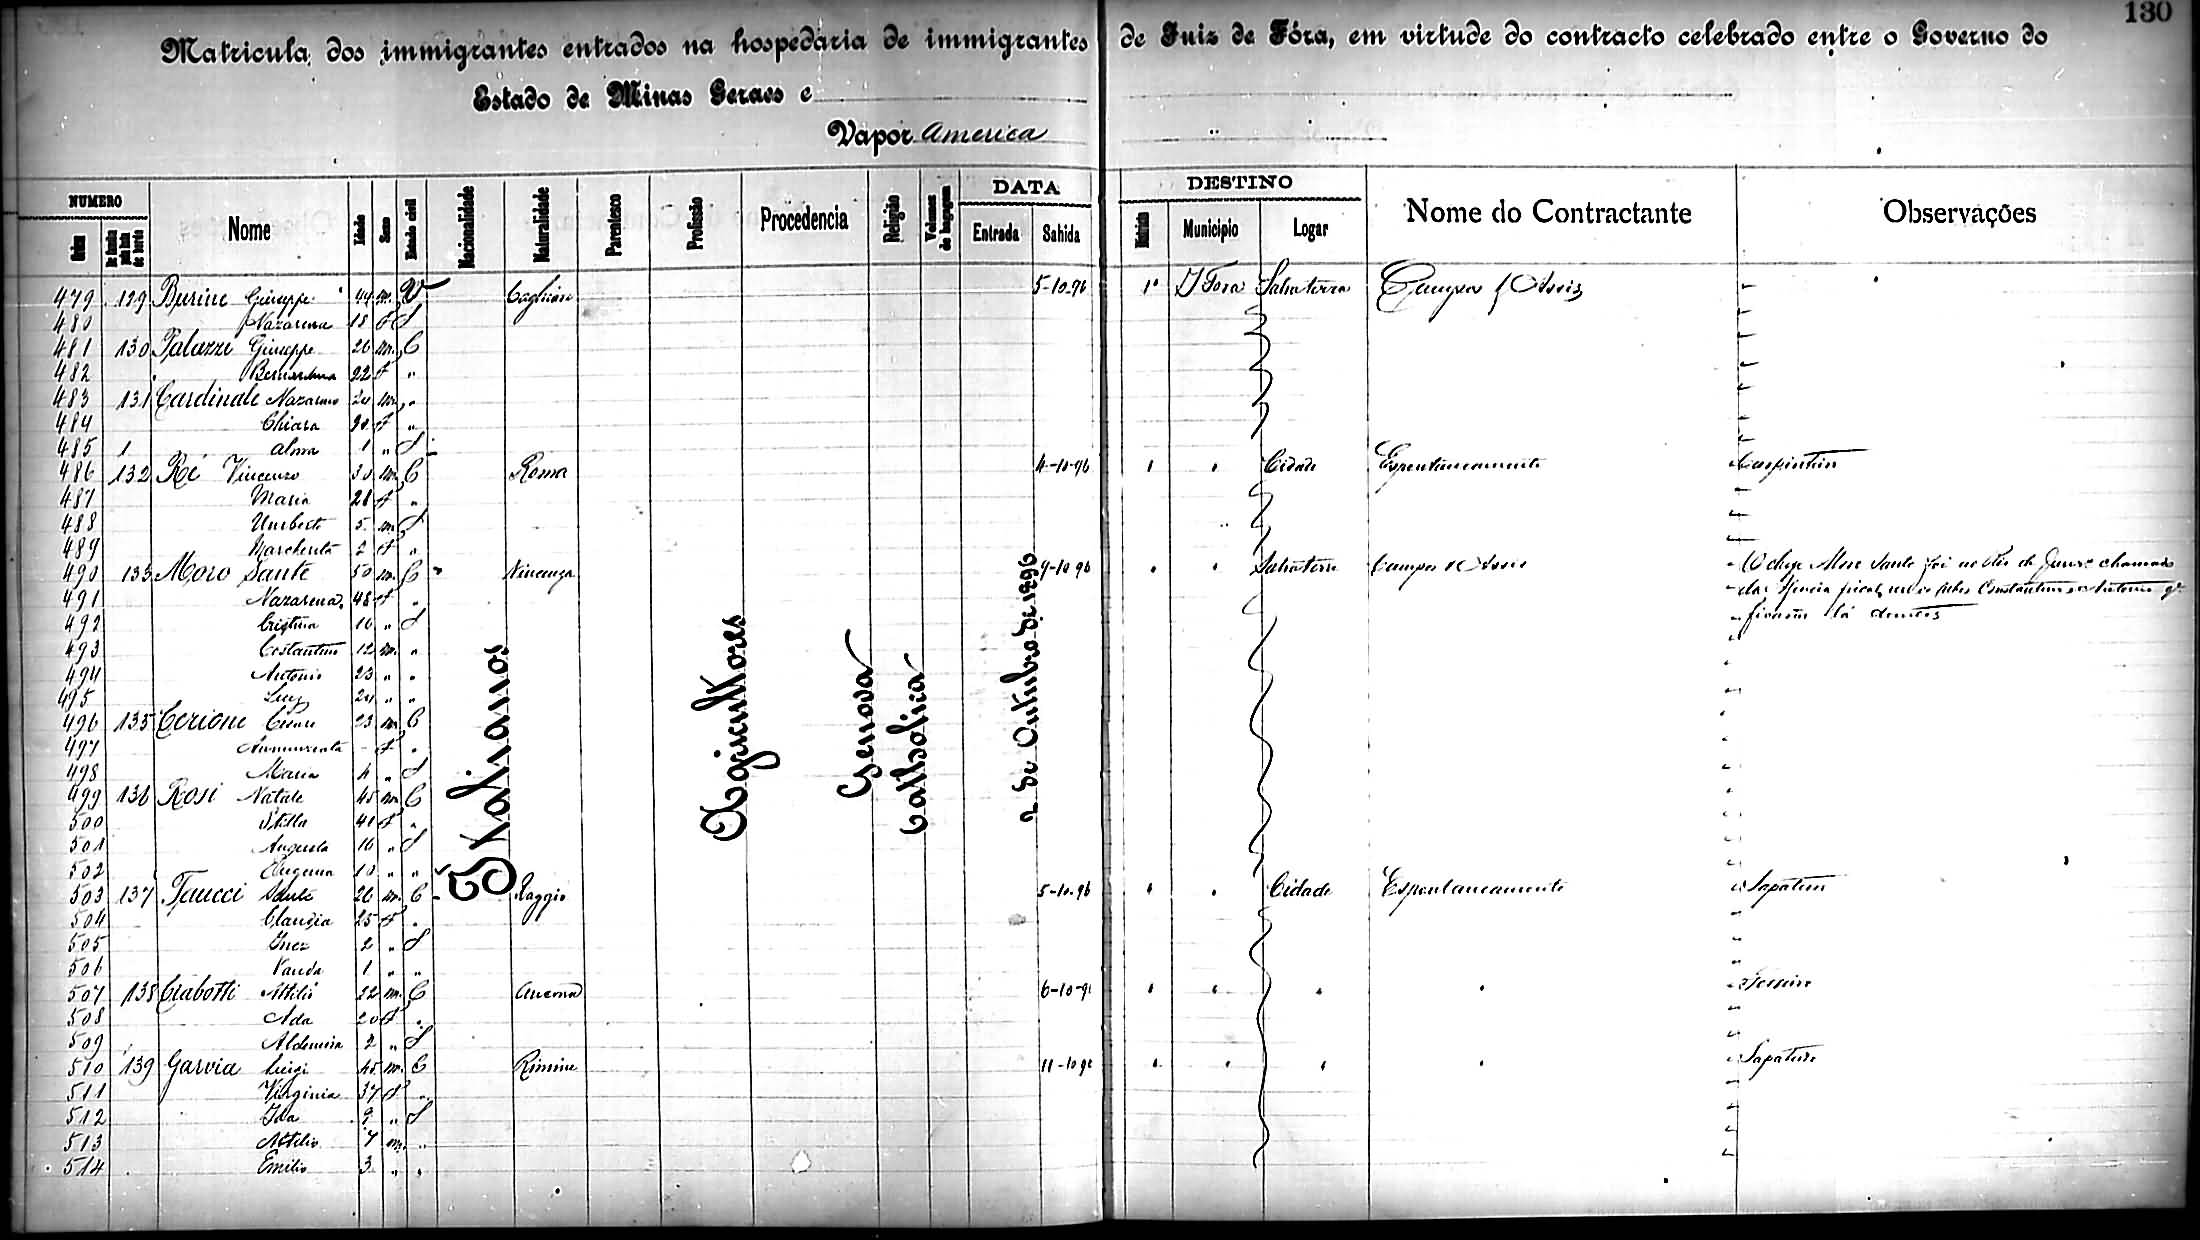 130
Matricula dos immigrantes entrados na hospedaria de immigrantes de Juiz de Fóra, em virtude do contracto celebrado entre o Governo do
Estado de Minas Geraes e
Vapor America
NUMERO Nome Idade Sexo Estado civil Nacionalidade Naturalidade Parentesco Profissão Procedencia Religião Volumes de bagagem DATA DESTINO Nome do Contractante Observações
Ordem Entrada Sahida Municipio Logar
Italianos
Agricultores
Genova
Catholica
2 de Outubro de 1896
479 129 Burine Giuseppe 44 m. V 5-10-96 1 J Fora Salvaterra Campos & Assis
480 Nazarena 18 f S
481 130 Palazzi Giuseppe 26 m. C
482 Bernardina 22 f "
483 131 Cardinale Nazareno 24 m. "
484 Chiara 20 f "
485 1 Alma 1 " S
486 132 Ré Vincenzo 30 m. C Roma 4-10-96 " " Cidade Espontaneamente Carpinteiro
487 Maria 28 f "
488 Umberto 5 m. S
489 Margherita 2 f "
490 133 Moro Sante 50 m. C Vincenza 9-10-96 " " Salvaterra Campos & Assis O chefe Moro Sante foi no Rio de Janrº chamado
491 Nazarena 48 f "
492 Cristina 16 " S ficaram lá
493 Costantino 12 m. "
494 Antonio 23 " "
495 Luiz 24 " "
496 135 Cerione Cesare 23 m. C
497 Annunziata - f "
498 Maria 4 " S
499 136 Rosi Natale 45 m. C
500 Stella 41 f "
501 Augusta 16 " S
502 Eugenia 10 " "
503 137 Taucci Sante 26 m. C Raggio 5-10-96 " " Cidade Espontaneamente Sapateiro
504 Claudia 25 f "
505 Inez 2 " S
506 Vanda 1 " "
507 138 Ciabotti Attilio 22 m. C Ancona 6-10-96 " " " "
508 Ada 20 f "
509 Aldemira 2 " S
510 139 Garvia Luigi 45 m. C Rimine 11-10-96 " " " " Sapateiro
511 Virginia 37 f "
512 Ida 9 " S
513 Attilio 7 m. "
514 Emilio 3 " "